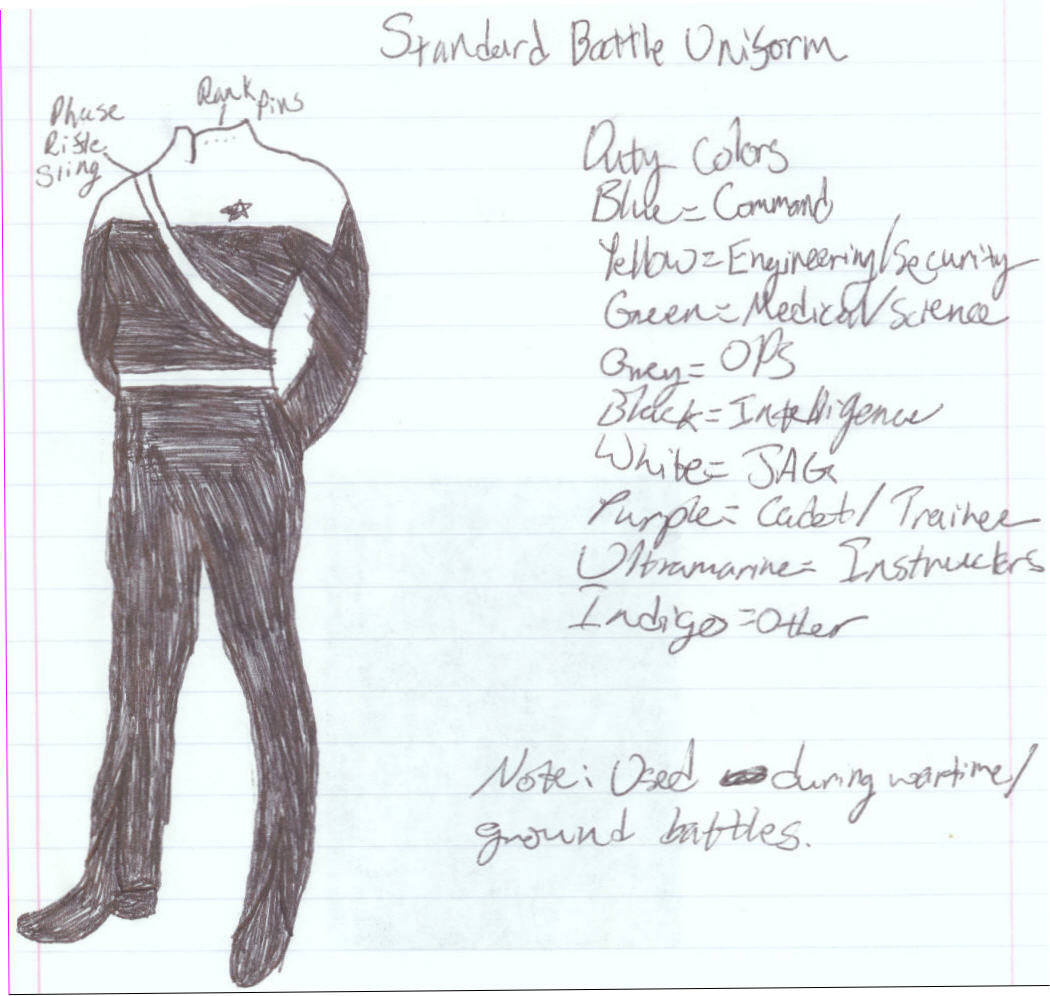 Standard Battle Uniform
Rank Pins
Phase
Rifle
Sling
Duty Colors
Blue = Command
Yellow = Engineering/Security
Green = Medical/Science
Grey = OPS
Black = Intelligence
White = JAG
Purple = Cadet/Trainee
Ultramarine = Instructors
Indigo = Other
Note: Used during wartime/
ground battles.